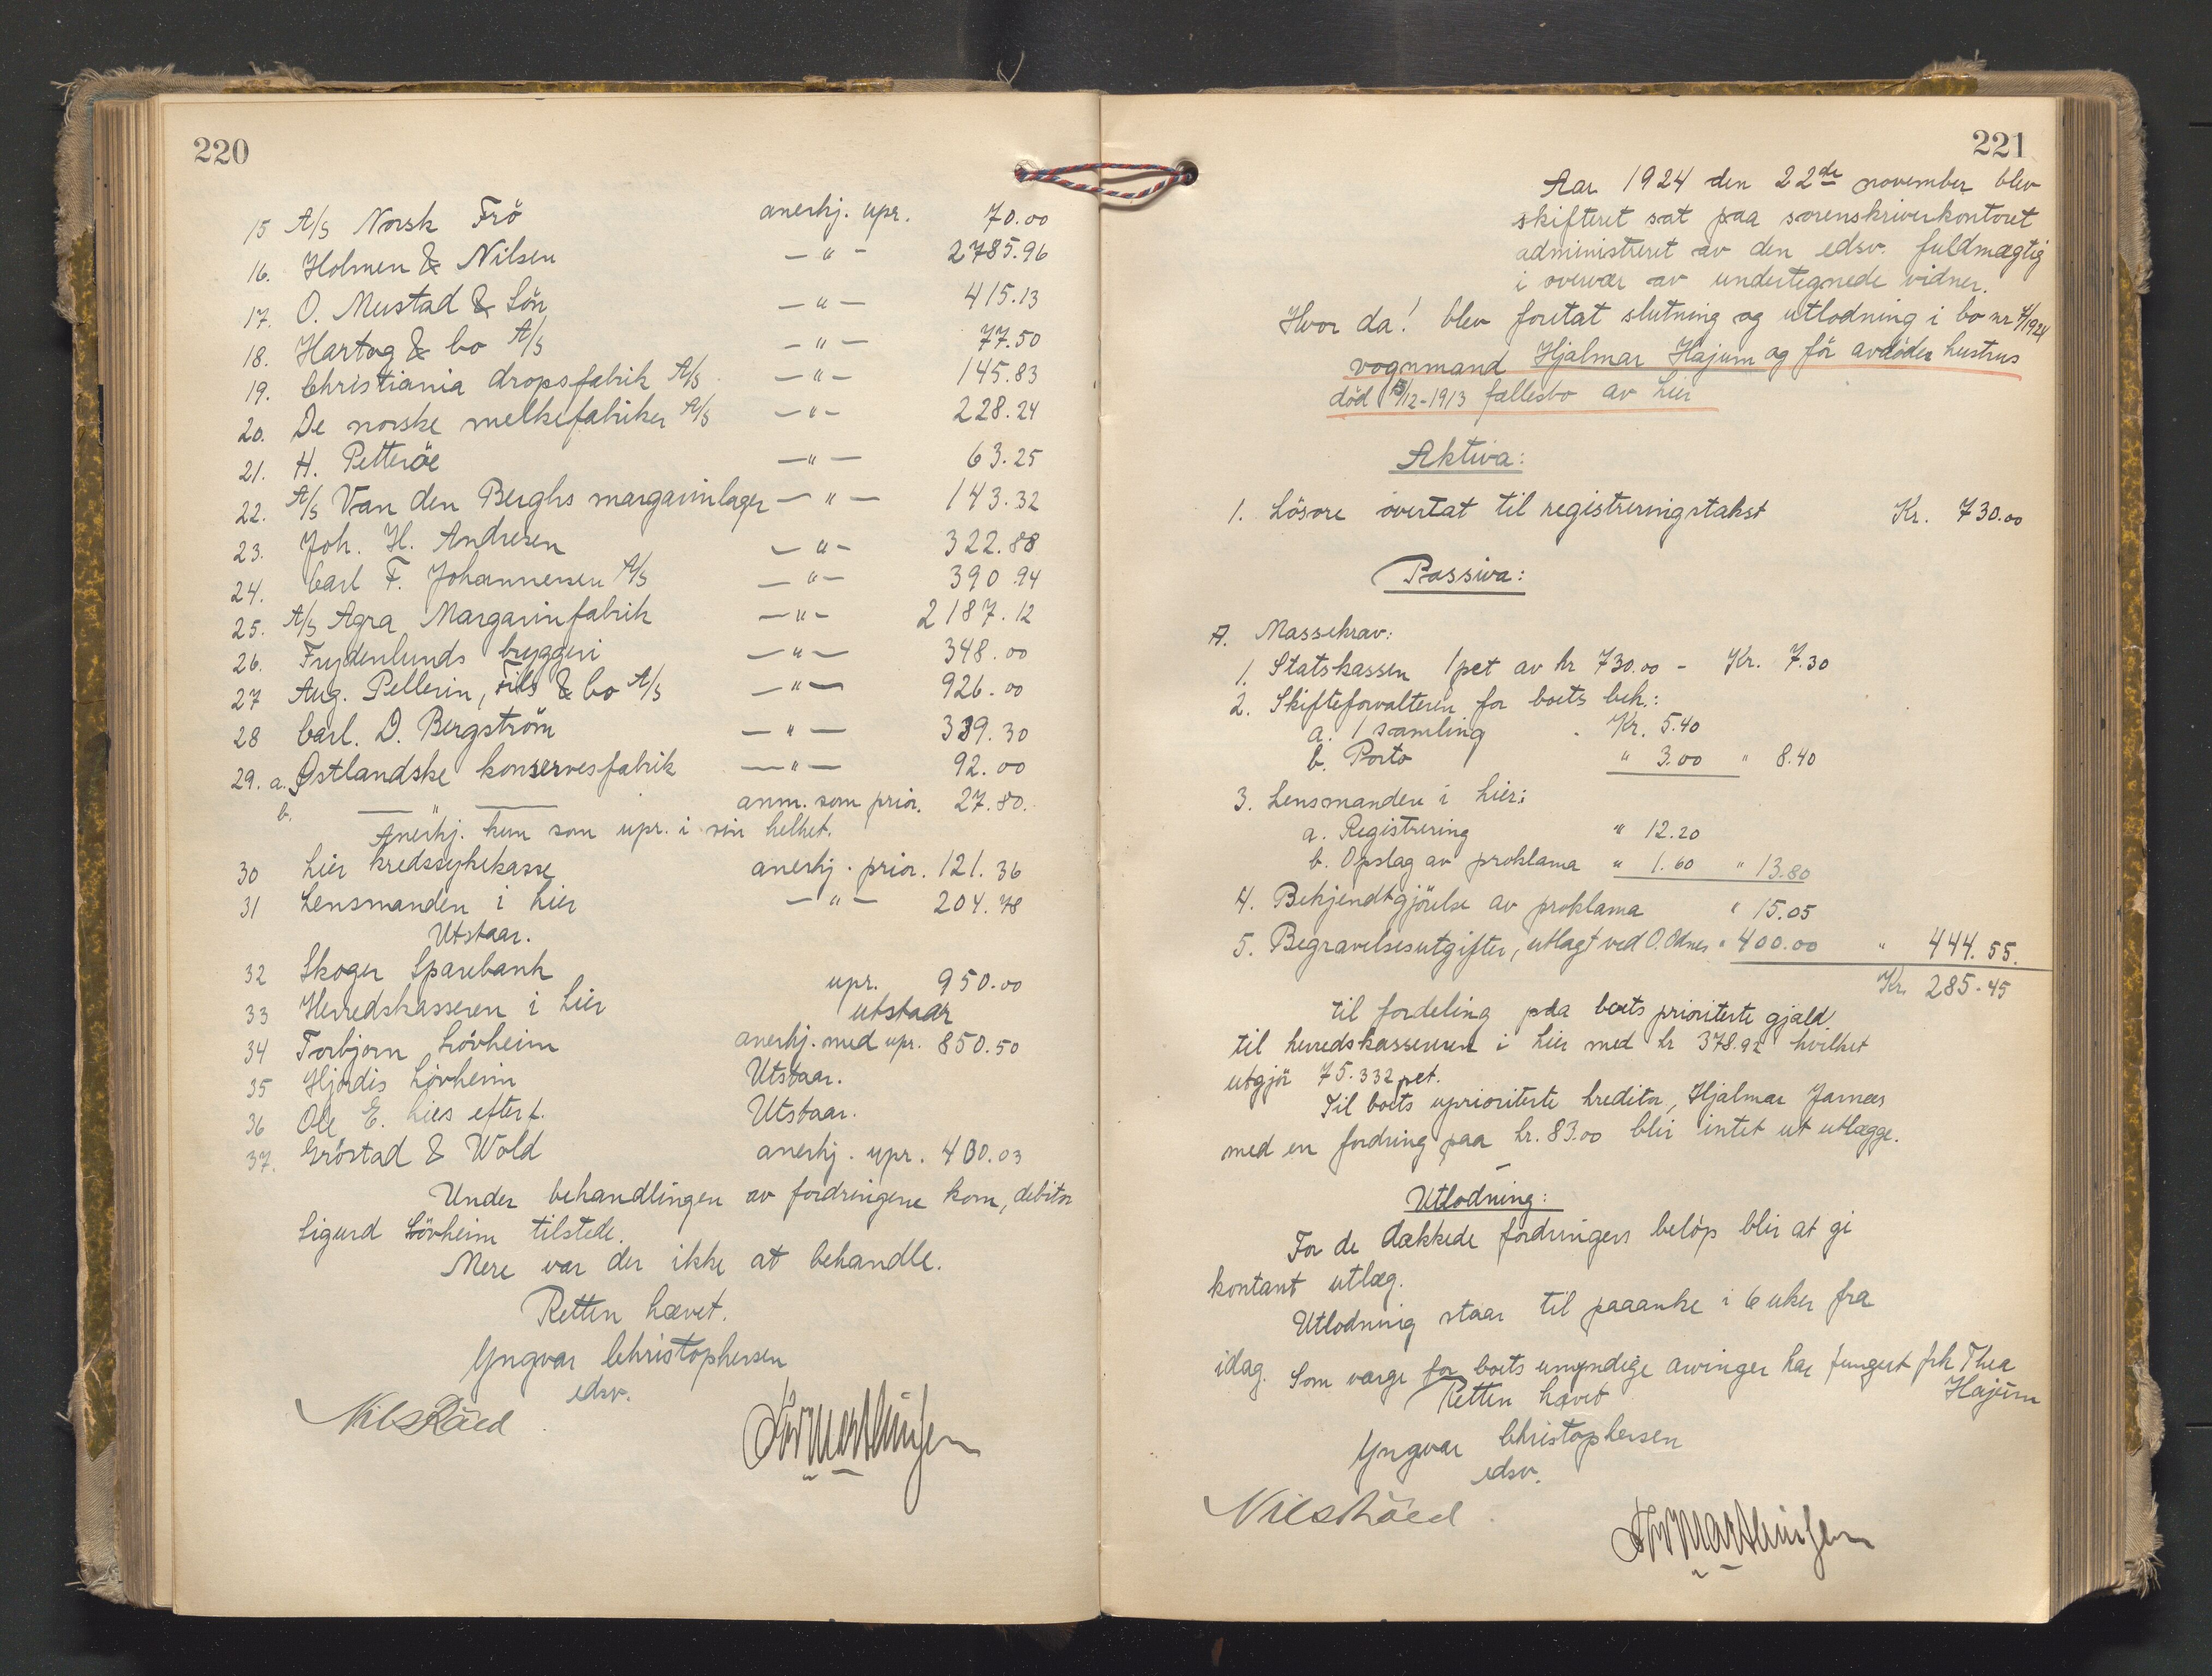 220
15 A/S Norsk Frö anerkj. upr. 70.00
16. Holmen & Nilsen — " — 2785.96
17. O. Mustad & Sön — " — 415.13
18. Hartog & Co A/S — " — 77.50
19. Christiania dropsfabrik A/S — " — 145.83
20. De norske melkefabriker A/S — " — 228.24
21. H. Petteröe — " — 63.25
22. A/S Van den Berghs margarinlager — " — 143.32
23. Joh. H. Andresen — " — 322.88
24. Carl F. Johannessen A/S — " — 390.94
25. A/S Agra Margarinfabrik — " — 2187.12
26. Frydenlunds bryggeri — " — 348.00
27 Aug. Pellerin, Fils & Co A/S — " — 926.00
28 Carl. D. Bergström — " — 339.30
29. a. Østlandske konservesfabrik — " — 92.00
b. — " — anm. som prior. 27.80.
Anerkj. kun som upr. i sin helhet.
30 Lier kredssykekasse anerkj. prior. 121.36
31 Lensmanden i Lier — " — 204.78
Utstaar.
32 Skoger Sparebank upr. 950.00
33 Herredskasseren i Lier utstaar
34 Torbjørn Lövheim anerkj. med upr. 850.50
35 Hjørdis Lövheim Utstaar.
36 Ole E. Lies efterf. Utstaar.
37. Gröstad & Wold anerkj. upr. 400.03
Under behandlingen av fordringene kom, debitor
Sigurd Lövheim tilstede.
Mere var der ikke at behandle.
Retten hævet.
Yngvar Christophersen
edsv.
Nils Röed
221
Aar 1924 den 22de november blev
skifteret sat paa sorenskriverkontoret
administreret av den edsv. fuldmægtig
i overvær av undertegnede vidner.
Hvor da! blev foretat slutning og utlodning i bo nr 4/1924
vognmand Hjalmar Hajum og för avdöde hustrus
död /12-1913 fællesbo av Lier
Aktiva:
1. Lösöre overtat til registreringstakst Kr. 730.00
Passiva:
A. Massekrav:
1. Statskassen 1 pct av kr 730.00 - Kr. 7.30
2. Skifteforvalteren for boets beh.:
a. 1 samling Kr. 5.40
b. Porto " 3.00 " 8.40
3. Lensmanden i Lier:
a. Registrering " 12.20
b. Opslag av proklama " 1.60 " 13.80
4. Bekjendtgjörelse av proklama " 15.05
5. Begravelsesutgifter, utlagt ved O. Odnes " 400.00 " 444.55.
Kr. 285.45
til fordeling paa boets prioriterte gjæld
til herredskassereren i Lier med kr 378.92 hvilket
utgjör 75.332 pct.
Til boets uprioriterte kreditor, Hjalmar Jarnæs
med en fordring paa kr. 83.00 blir intet at utlægge.
Utlodning:
For de dækkede fordringers belöp blir at gi
kontant utlæg.
Utlodning staar til paaanke i 6 uker fra
idag. Som værge for boets umyndige arvinger har fungert frk Thea
Hajum
Retten hævet
Yngvar Christophersen
edsv.
Nils Röed